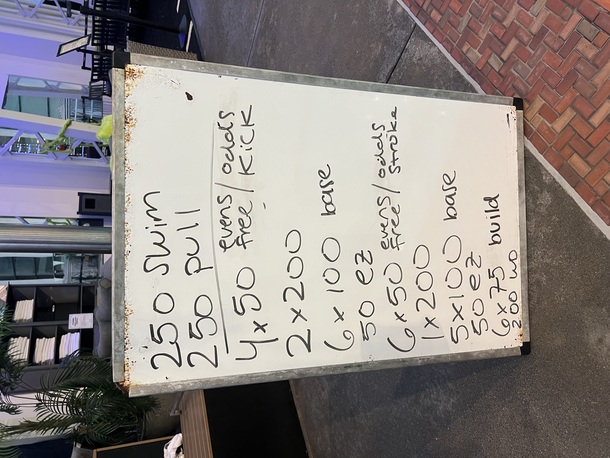 250 swim
250 pull
4 x 50 evens/odds
free/kick
2 x 200
6 x 100 base
50 ez
6 x 50 evens/odds
free/stroke
1 x 200
5 x 100 base
50 ez
6 x 75 build
200 wo